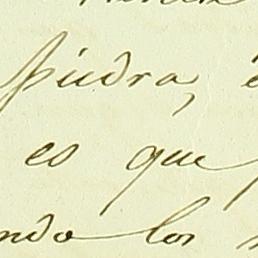 piedra, é
es que
ndo los